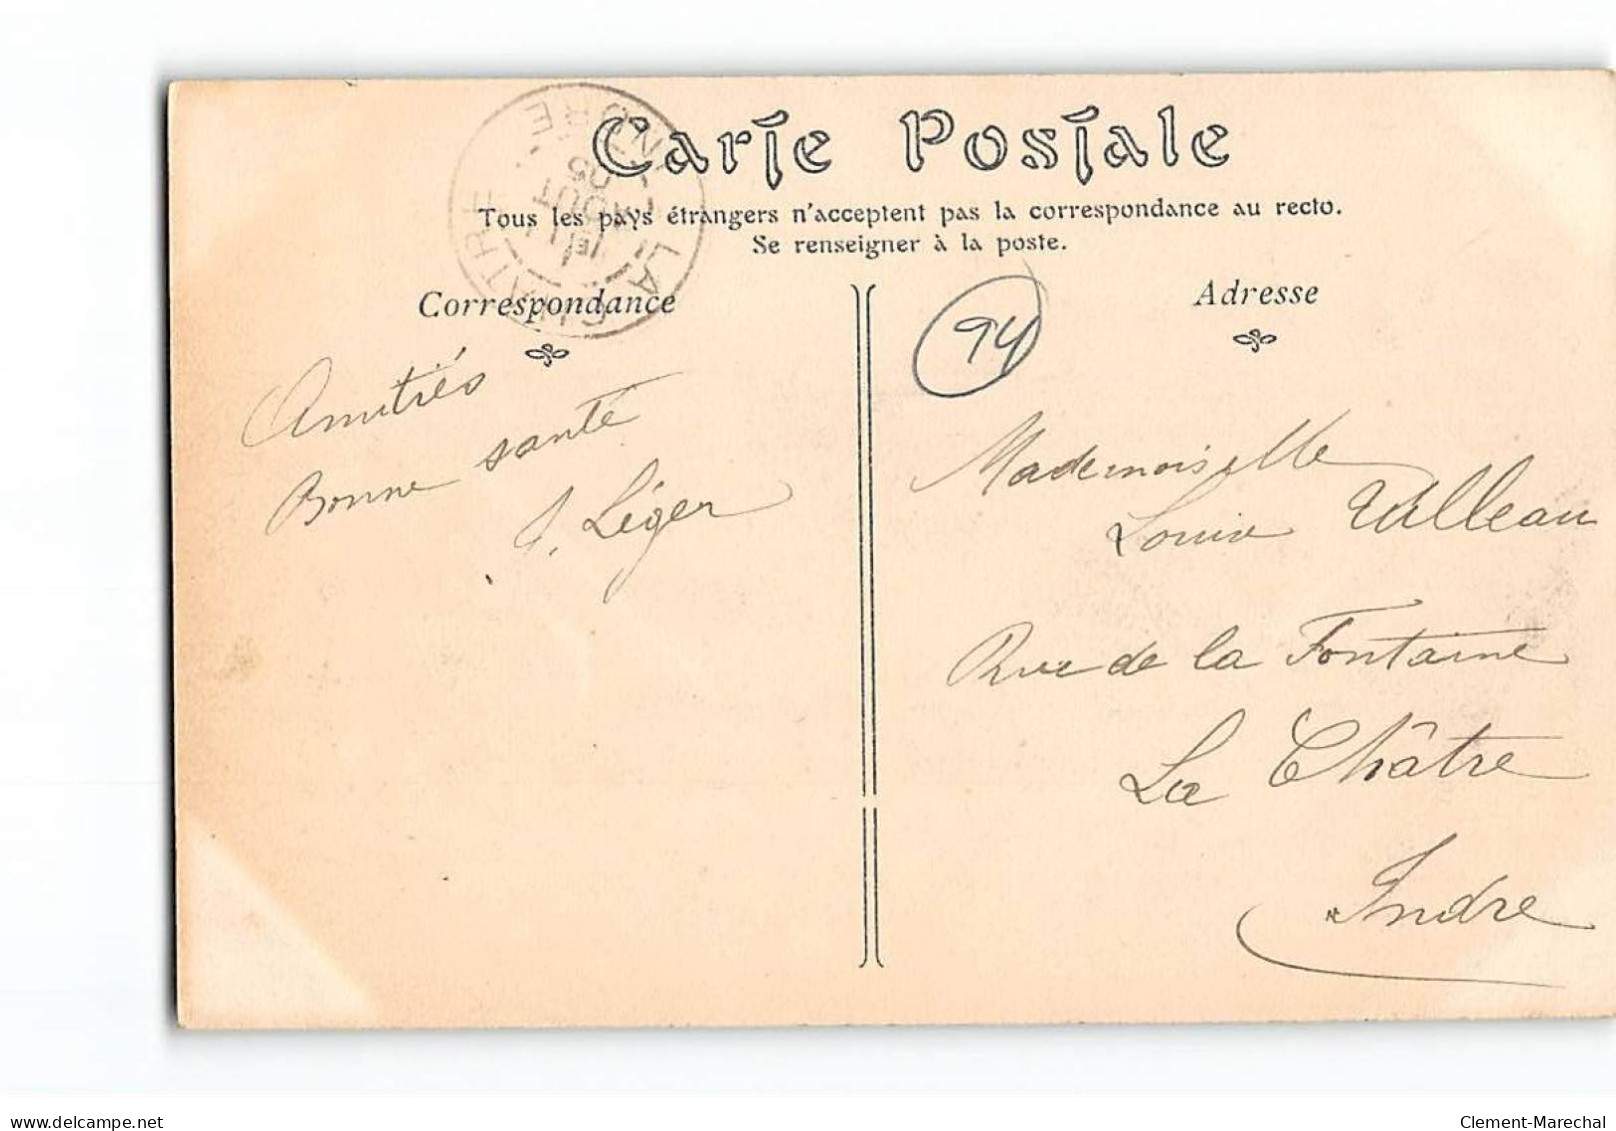 Carte Postale
Tous les pays étrangers n'acceptent pas la correspondance au recto.
Se renseigner à la poste.
LA CHATRE
INDRE
AOUT
05
Correspondance
Adresse
94
Amitiés
Bonne santé
Léger
Mademoiselle
Louise
Rue de la Fontaine
La Châtre
Indre
www.delcampe.net
Clement-Marechal